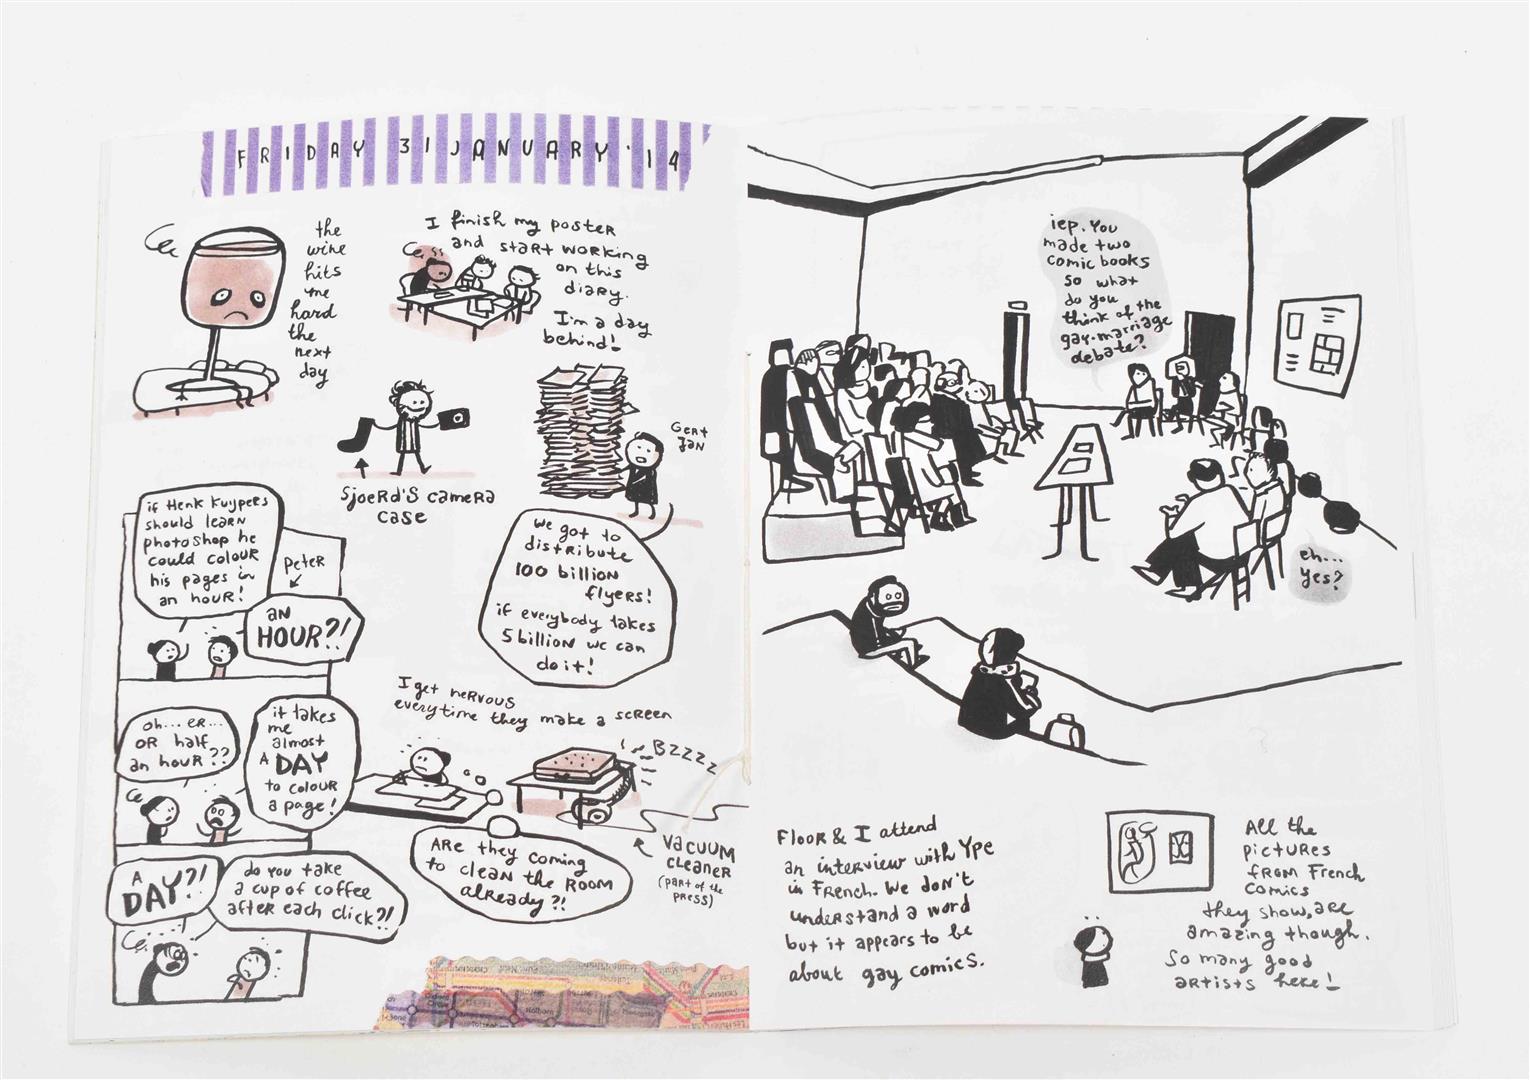 FRIDAY 31 JANUARY '14
the
wine
hits
me
hard
the
next
day
I finish my poster
and start working
on this
diary.
I'm a day
behind!
Sjoerd's camera
case
Gert
Jan
We got to
distribute
100 billion
flyers!
if everybody takes
5 billion we can
do it!
if Henk Kuypers
should learn
photoshop he
could colour
his pages in
an hour!
Peter
an
HOUR?!
oh... er...
or half
an hour??
it takes
me
almost
A DAY
to colour
a page!
A
DAY?!
do you take
a cup of coffee
after each click?!
I get nervous
everytime they make a screen
BZZZZ
Are they coming
to clean the room
already?!
Vacuum
cleaner
(part of the
press)
iep. You
made two
comic books
so what
do you
think of the
gay-marriage
debate?
eh...
yes?
Floor & I attend
an interview with Ype
in French. We don't
understand a word
but it appears to be
about gay comics.
All the
pictures
from French
comics
they show, are
amazing though.
So many good
artists here!
Holborn